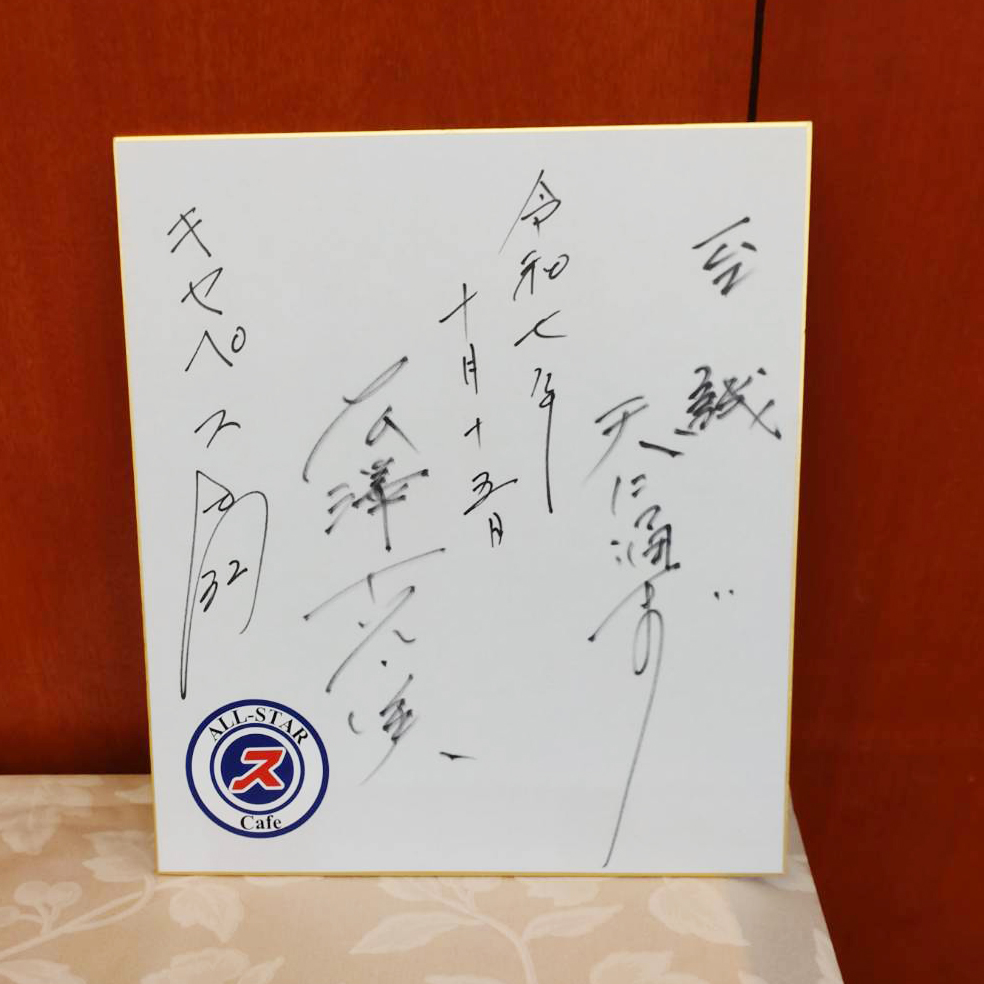 至誠
天に通ず
令和七年
十月十五日
広澤克実
キセペス
32
ALL-STAR
ス
Cafe